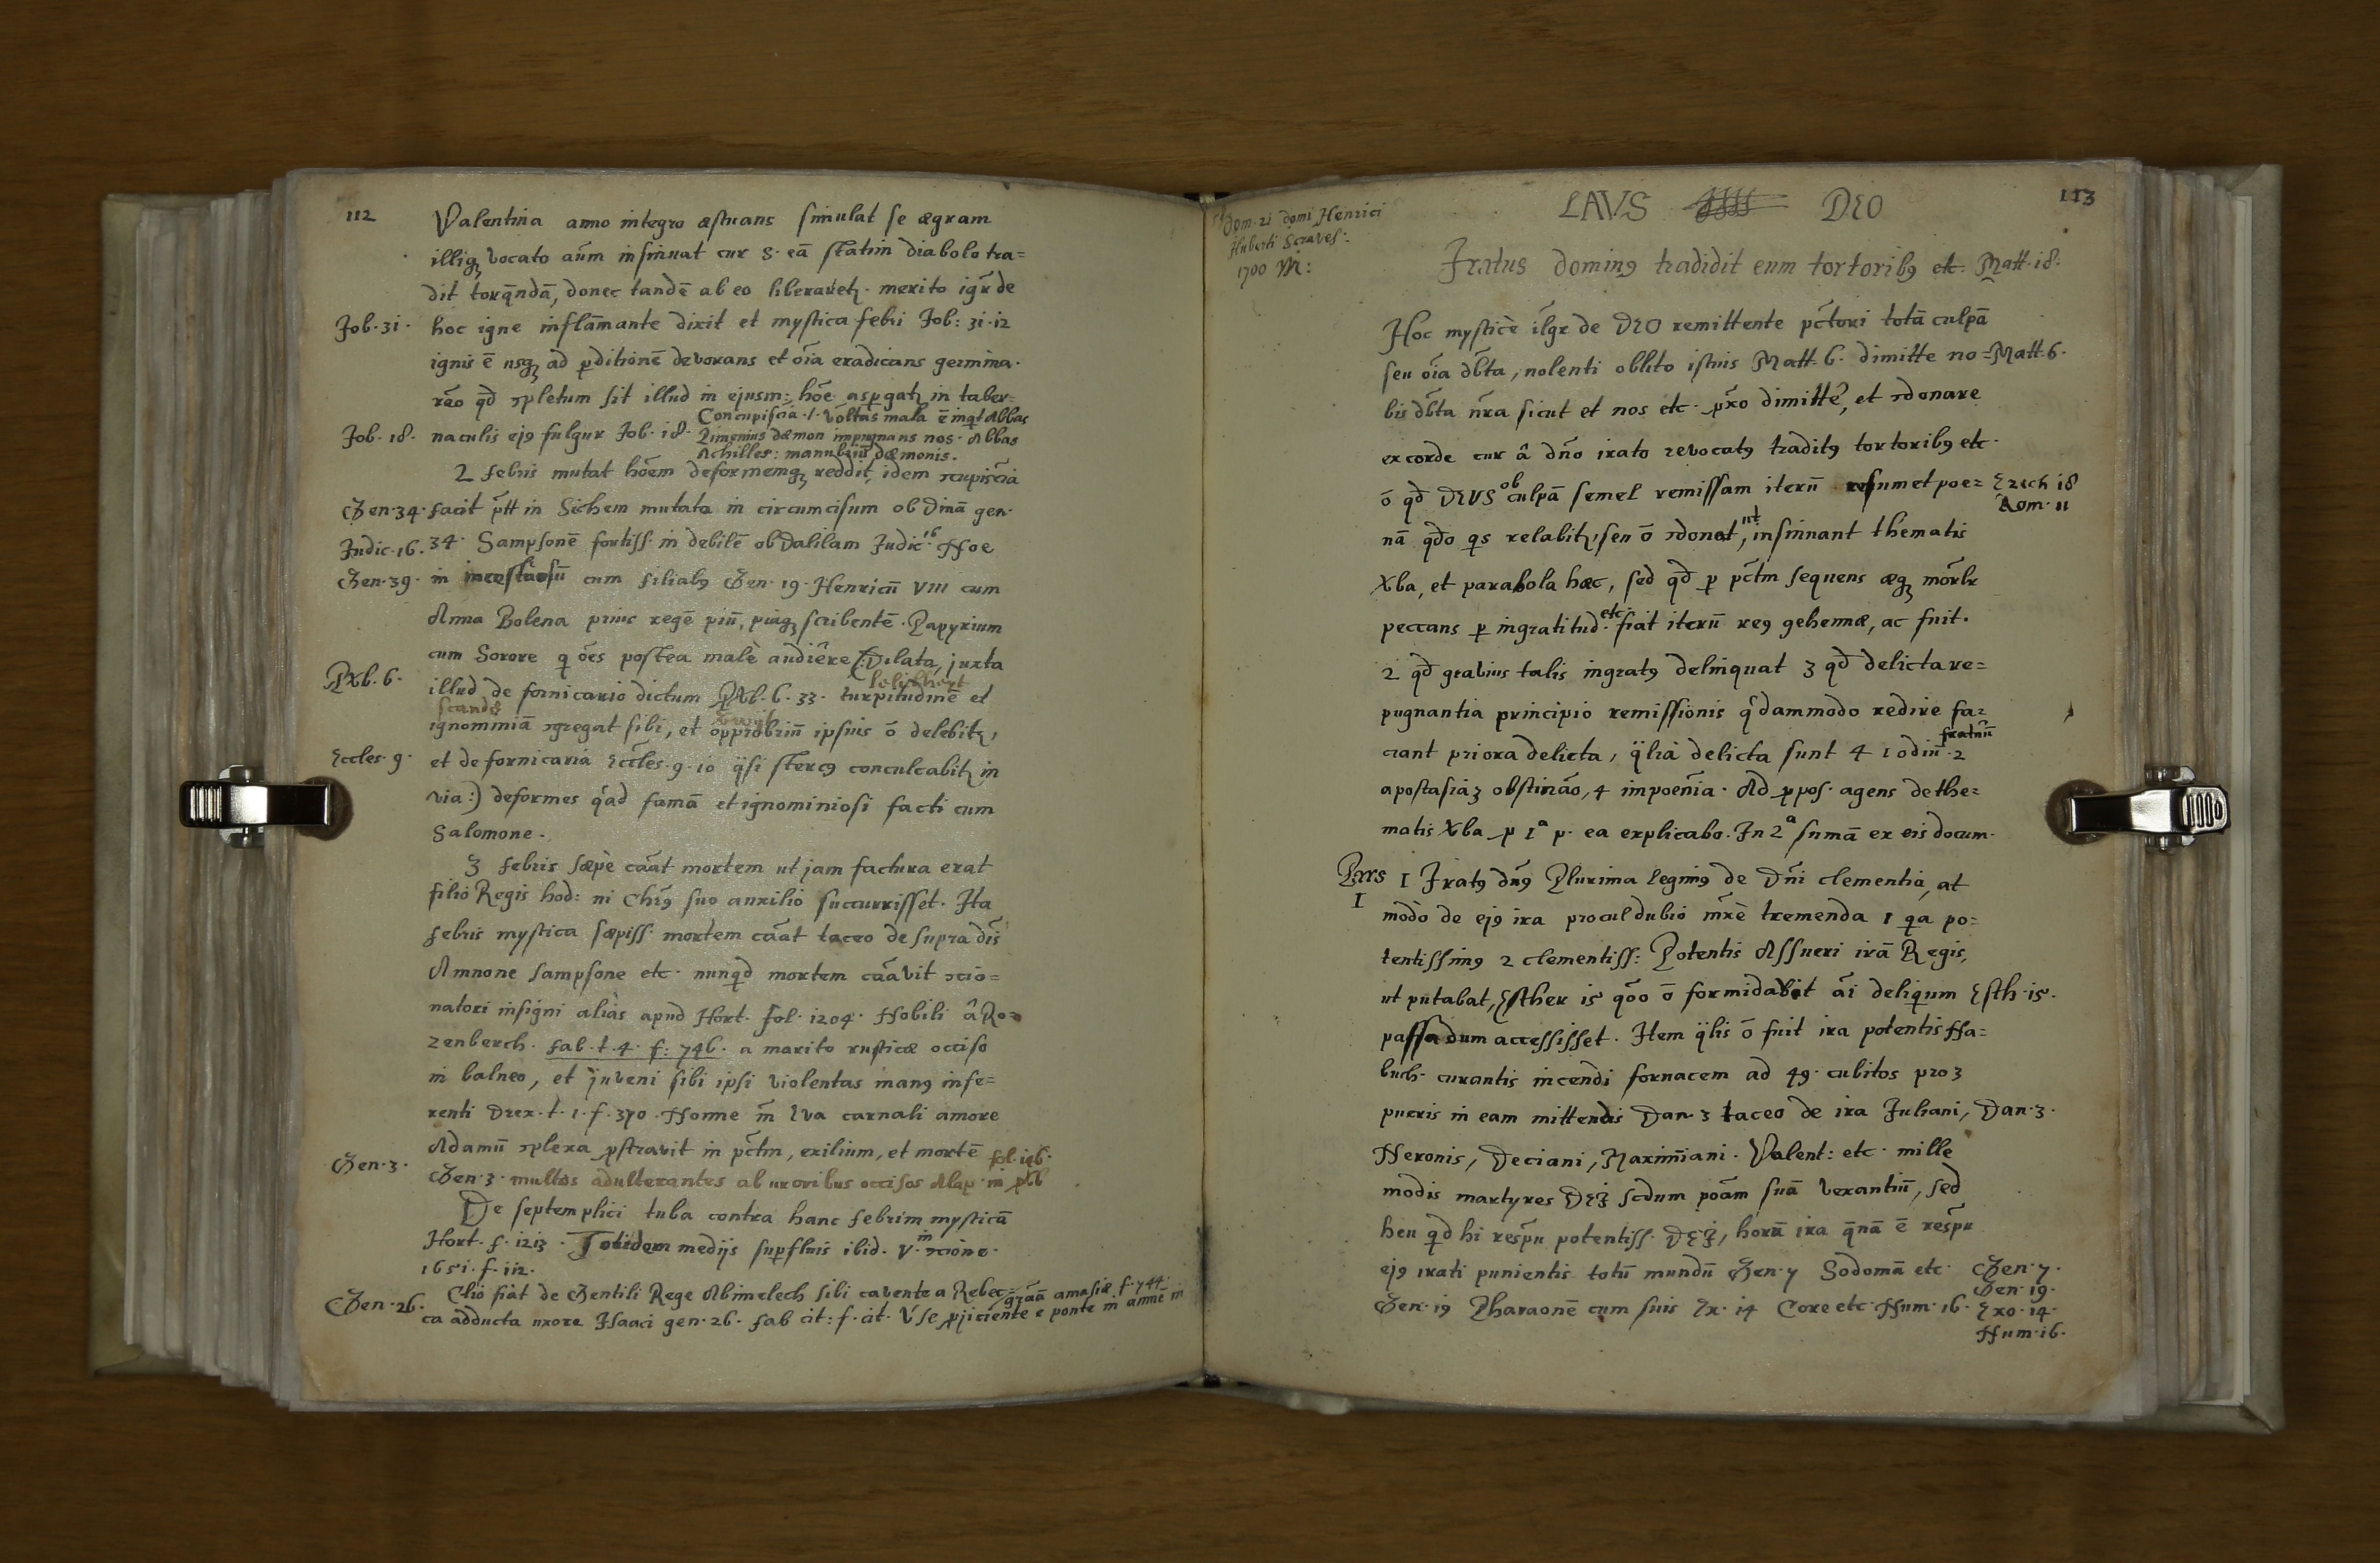 112
Valentina anno integro æstuans simulat se ægram
illiqȝ vocato aūm insinuat cur S. eā statim diabolo tra=
dit torqn̄dā, donec tandē ab eo liberaretȝ. merito igr̄ de
Job. 31. hoc igne inflāmante dixit et mystica febri Job: 31. 12
ignis ē usqȝ ad pditionē devorans et oīa eradicans germina.
rēo qd ɔpletum sit illud in ejusm: hōe aspgatȝ in taber=
Concupiscīa .1. vōltas mala ē inqt Abbas
Job. 18. naculis ej9 fulgur Job. 18. Zimenius dæmon impugnans nos. Abbas
Achilles: manubriū dæmonis.
2 febris mutat hōem deformemqȝ reddit, idem ɔcupiscīa
Gen. 34. facit ptt in Sichem mutata in circumcisum ob Dinā gen.
Judic. 16. 34. Sampsonē fortiss. in debilē ob Dalilam Judic. 16 Noe
Gen. 39. in incestuosū cum filiab9 Gen. 19. Henricū VIII cum
Anna Bolena prius regē piū, piaqȝ scribentē. Papyrium
cum Sorore q ōes postea malè audiēre (: Dilata, juxta
Prb. 6. illud de fornicario dictum Prb. 6. 33. turpitudinē et
ignominiā ɔgregat sibi, et opprobriū ipsius ō delebitȝ,
Eccles. 9. et de fornicaria Eccles. 9. 10 qsi sterc9 conculcabitȝ in
via:) deformes qād famā et ignominiosi facti cum
Salomone.
3 febris sæpè cāat mortem ut jam factura erat
filio Regis hod: ni Chr9 suo auxilio succurrisset. Ita
febris mystica sæpiss. mortem cāat taceo de supra dīs
Amnone Sampsone etc. nunqd mortem cāavit ɔcio=
natori insigni aliàs apud Hort. fol. 1204. Nobili â Ro=
zenberch. fab. t. 4. f: 746. a marito rusticæ occiso
in balneo, et juveni sibi ipsi violentas man9 infe=
renti Drex. t. 1. f. 370. Nonne m̄ Eva carnali amore
Adamū ɔplexa pstravit in pctm, exilium, et mortē fol. 196.
Gen. 3. Gen. 3. multos adulterantes ab uxoribus occisos Alap. in prb
De septemplici tuba contra hanc febrim mysticā
Hort. f. 1213. Totidem medijs supfluis ibid. V. in ɔcione.
1651. f. 112.
Gen. 26. Clio fiat de Gentili Rege Abimelech sibi cavente a Rebec= grāā amasiæ f. 744.
ca adducta uxore Isaaci gen. 26. fab cit: f. cit. V se pjiciente e ponte in amnē in
113
Dom. 21 domi Henrici
Huberti
1700 M:
LAVS DEO
Iratus domin9 tradidit eum tortorib9 etc. Matt. 18.
Hoc mysticè ilgr de DEO remittente pctori totā culpā
seu oīa dbta, nolenti oblito istius Matt. 6. dimitte no= Matt. 6.
bis dbta nr̄a sicut et nos etc. pxo dimittē, et ɔdonare
ex corde cur â dn̄o irato revocat9 tradit9 tortorib9 etc.
ō qd DEUS ob culpā semel remissam iterū resumet poe= Ezech 18
Rom. 11
nā qdo qs relabitȝ, seu ō ɔdonat, ut insinuant thematis
Xba, et parabola hæc, sed qd p pctm sequens æqȝ mōrlr
peccans p ingratitud. etc. fiat iterū re9 gehennæ, ac fuit.
2 qd gravius talis ingrat9 delinquat 3 qd delicta re=
pugnantia principio remissionis qdammodo redire fa=
ciant priora delicta, qlia delicta sunt 4 1 odiū fratrū. 2
apostasia 3 obstināo, 4 impoenīa. Ad ppos. agens de the=
matis Xba p 1ª p. ea explicabo. In 2ª sumā ex eis docum.
Pars 1 Irat9 dn̄9 Plurima legim9 de Dn̄i clementia, at
1
modo de ej9 ira procul dubio mr̄è tremenda 1 qa po=
tentissim9 2 clementiss: Potentis Assueri irā Regis,
ut putabat, Esther 15 qōo ō formidabit āi deliquum Esth. 15.
passa dum accessisset. Item qlis ō fuit ira potentis Na=
buch. curantis incendi fornacem ad 49. cubitos pro 3
pueris in eam mittendis Dan. 3 taceo de ira Juliani, Dan. 3.
Neronis, Deciani, Maximiani. Valent: etc. mille
modis martyres DEI scdum poām suā vexantiū, sed
heu qd hi respu potentiss. DEI, horū ira qn̄ā ē respu
ej9 irati punientis totū mundū Gen. 7 Sodomā etc. Gen. 7.
Gen. 19.
Gen. 19 Pharaonē cum suis Ex. 14 Core etc. Num. 16. Exo. 14.
Num. 16.